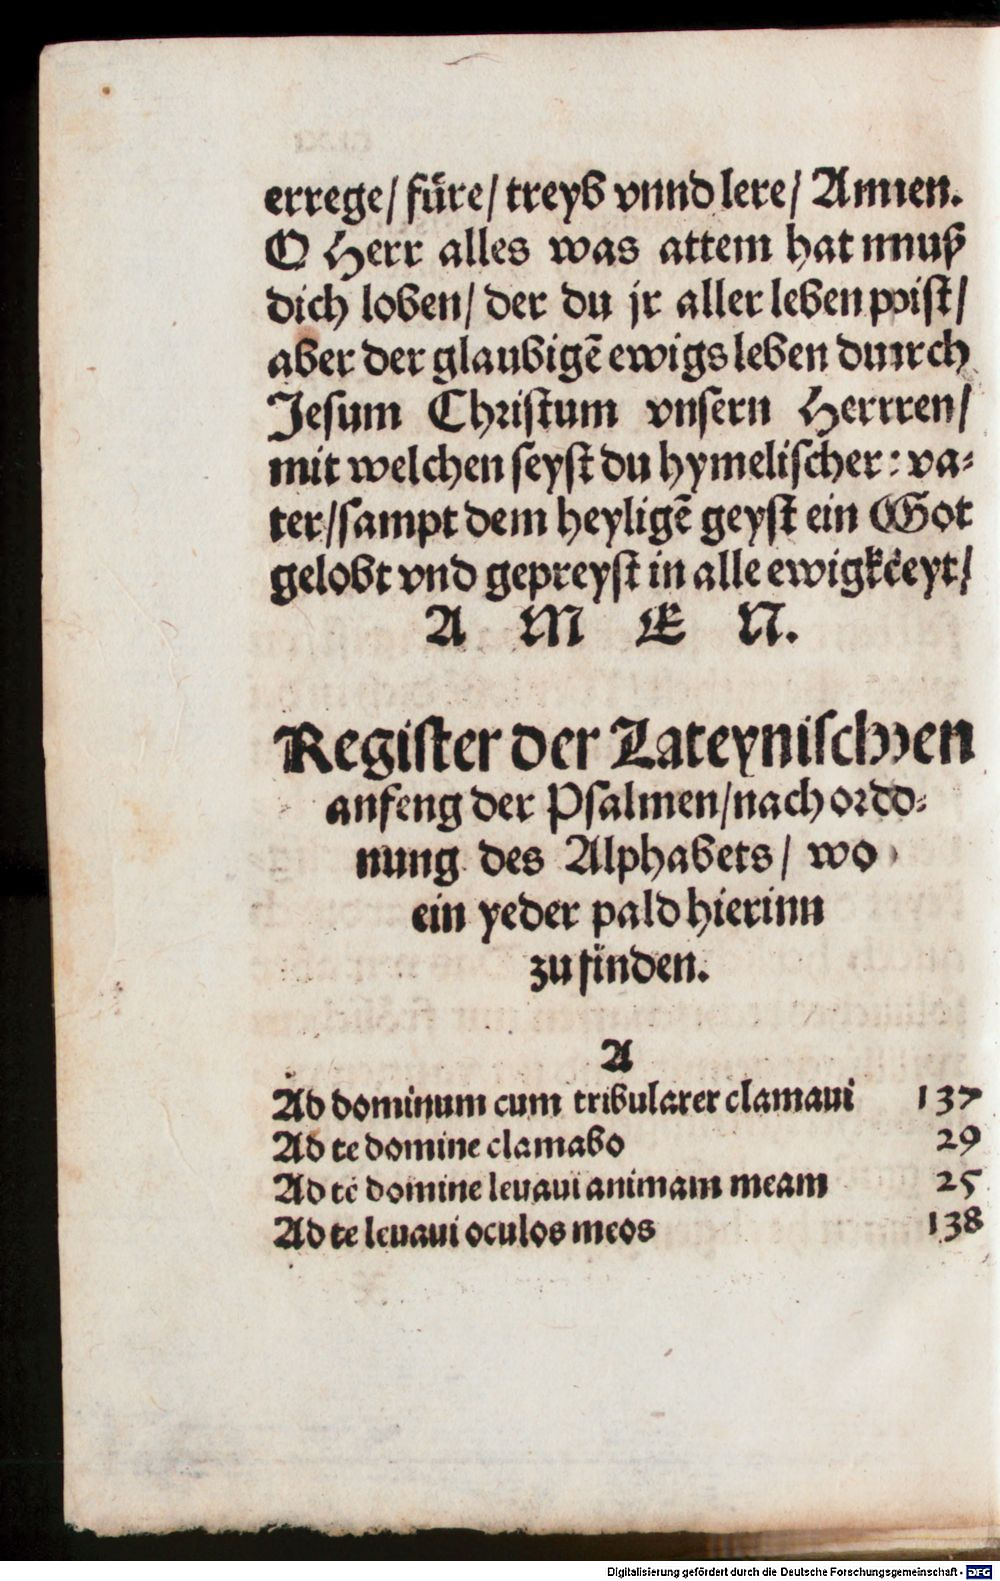 errege/ füre/ treyb vnnd lere/ Amen.
O Herr alles was attem hat muß
dich loben/ der du jr aller leben pist/
aber der glaubigē ewigs leben durch
Jesum Christum vnsern Herrren/
mit welchen seyst du hymelischer : va⸗
ter/sampt dem heyligē geyst ein Got
gelobt vnd gepreyst in alle ewigkeyt/
A M E N.
Register der Lateynischen
anfeng der Psalmen/nach ordd⸗
nung des Alphabets/ wo
ein yeder pald hierinn
zu finden.
A
Ad dominum cum tribularer clamaui 137
Ad te domine clamabo 29
Ad te domine leuaui animam meam 25
Ad te leuaui oculos meos 138
Digitalisierung gefördert durch die Deutsche Forschungsgemeinschaft - DFG